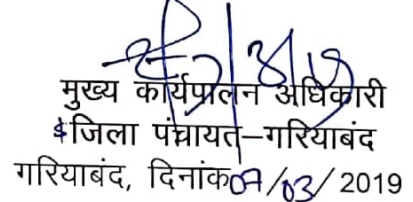 मुख्य कार्यपालन अधिकारी
जिला पंचायत–गरियाबंद
गरियाबंद, दिनांक 07/03/2019